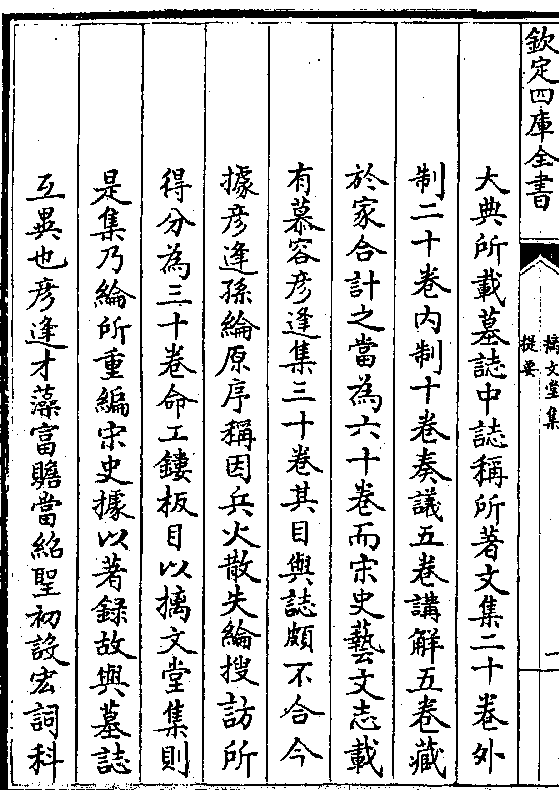 欽定四庫全書
摛文堂集
提要
一
大典所載墓誌中誌稱所著文集二十卷外
制二十卷内制十卷奏議五卷講解五卷藏
於家合計之當為六十卷而宋史藝文志載
有慕容彦逢集三十卷其目與誌頗不合今
據彦逢孫綸原序稱因兵火散失綸搜訪所
得分為三十卷命工鏤板目以摛文堂集則
是集乃綸所重編宋史據以著録故與墓誌
互異也彦逢才藻富贍當紹聖初設宏詞科